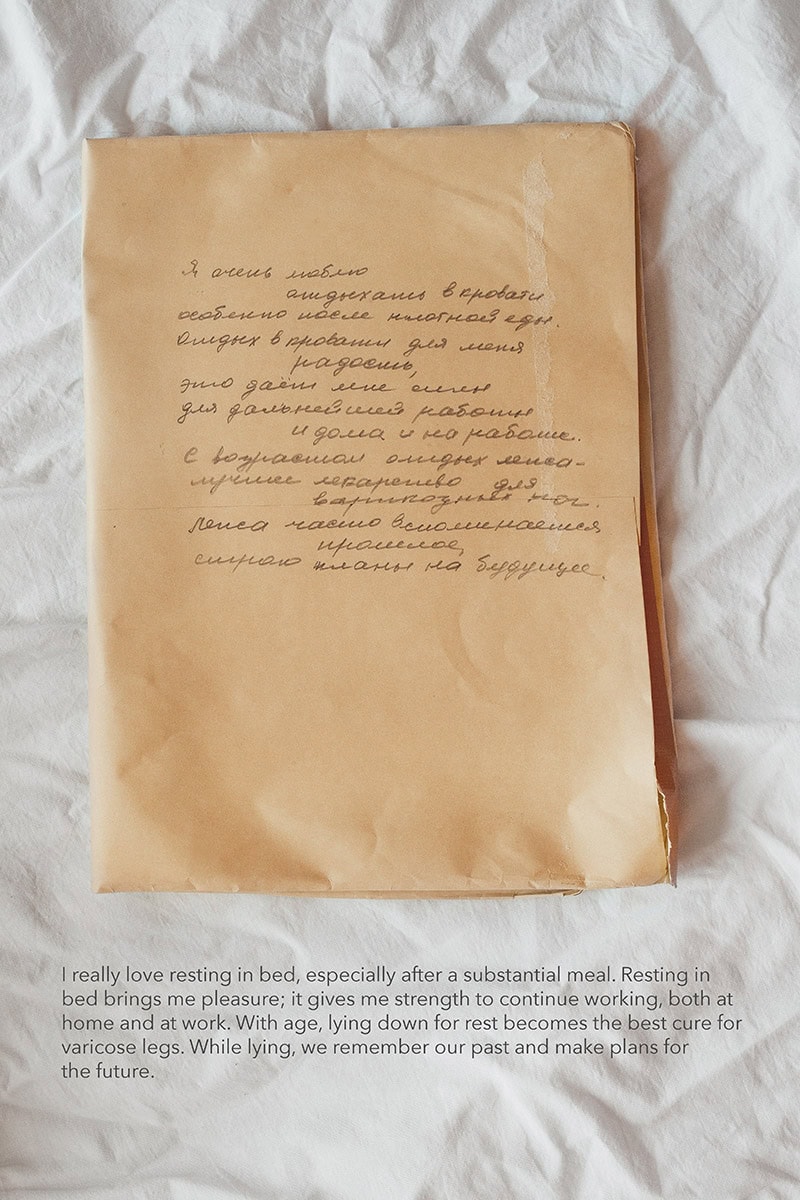 Я очень люблю
отдыхать в кровати
особенно после плотной еды.
Отдых в кровати для меня
радость,
это даёт мне силы
для дальнейшей работы
и дома и на работе.
С возрастом отдых лежа-
лучшее лекарство для
варикозных ног.
Лежа часто вспоминается
прошлое,
строю планы на будущее.
I really love resting in bed, especially after a substantial meal. Resting in
bed brings me pleasure; it gives me strength to continue working, both at
home and at work. With age, lying down for rest becomes the best cure for
varicose legs. While lying, we remember our past and make plans for
the future.